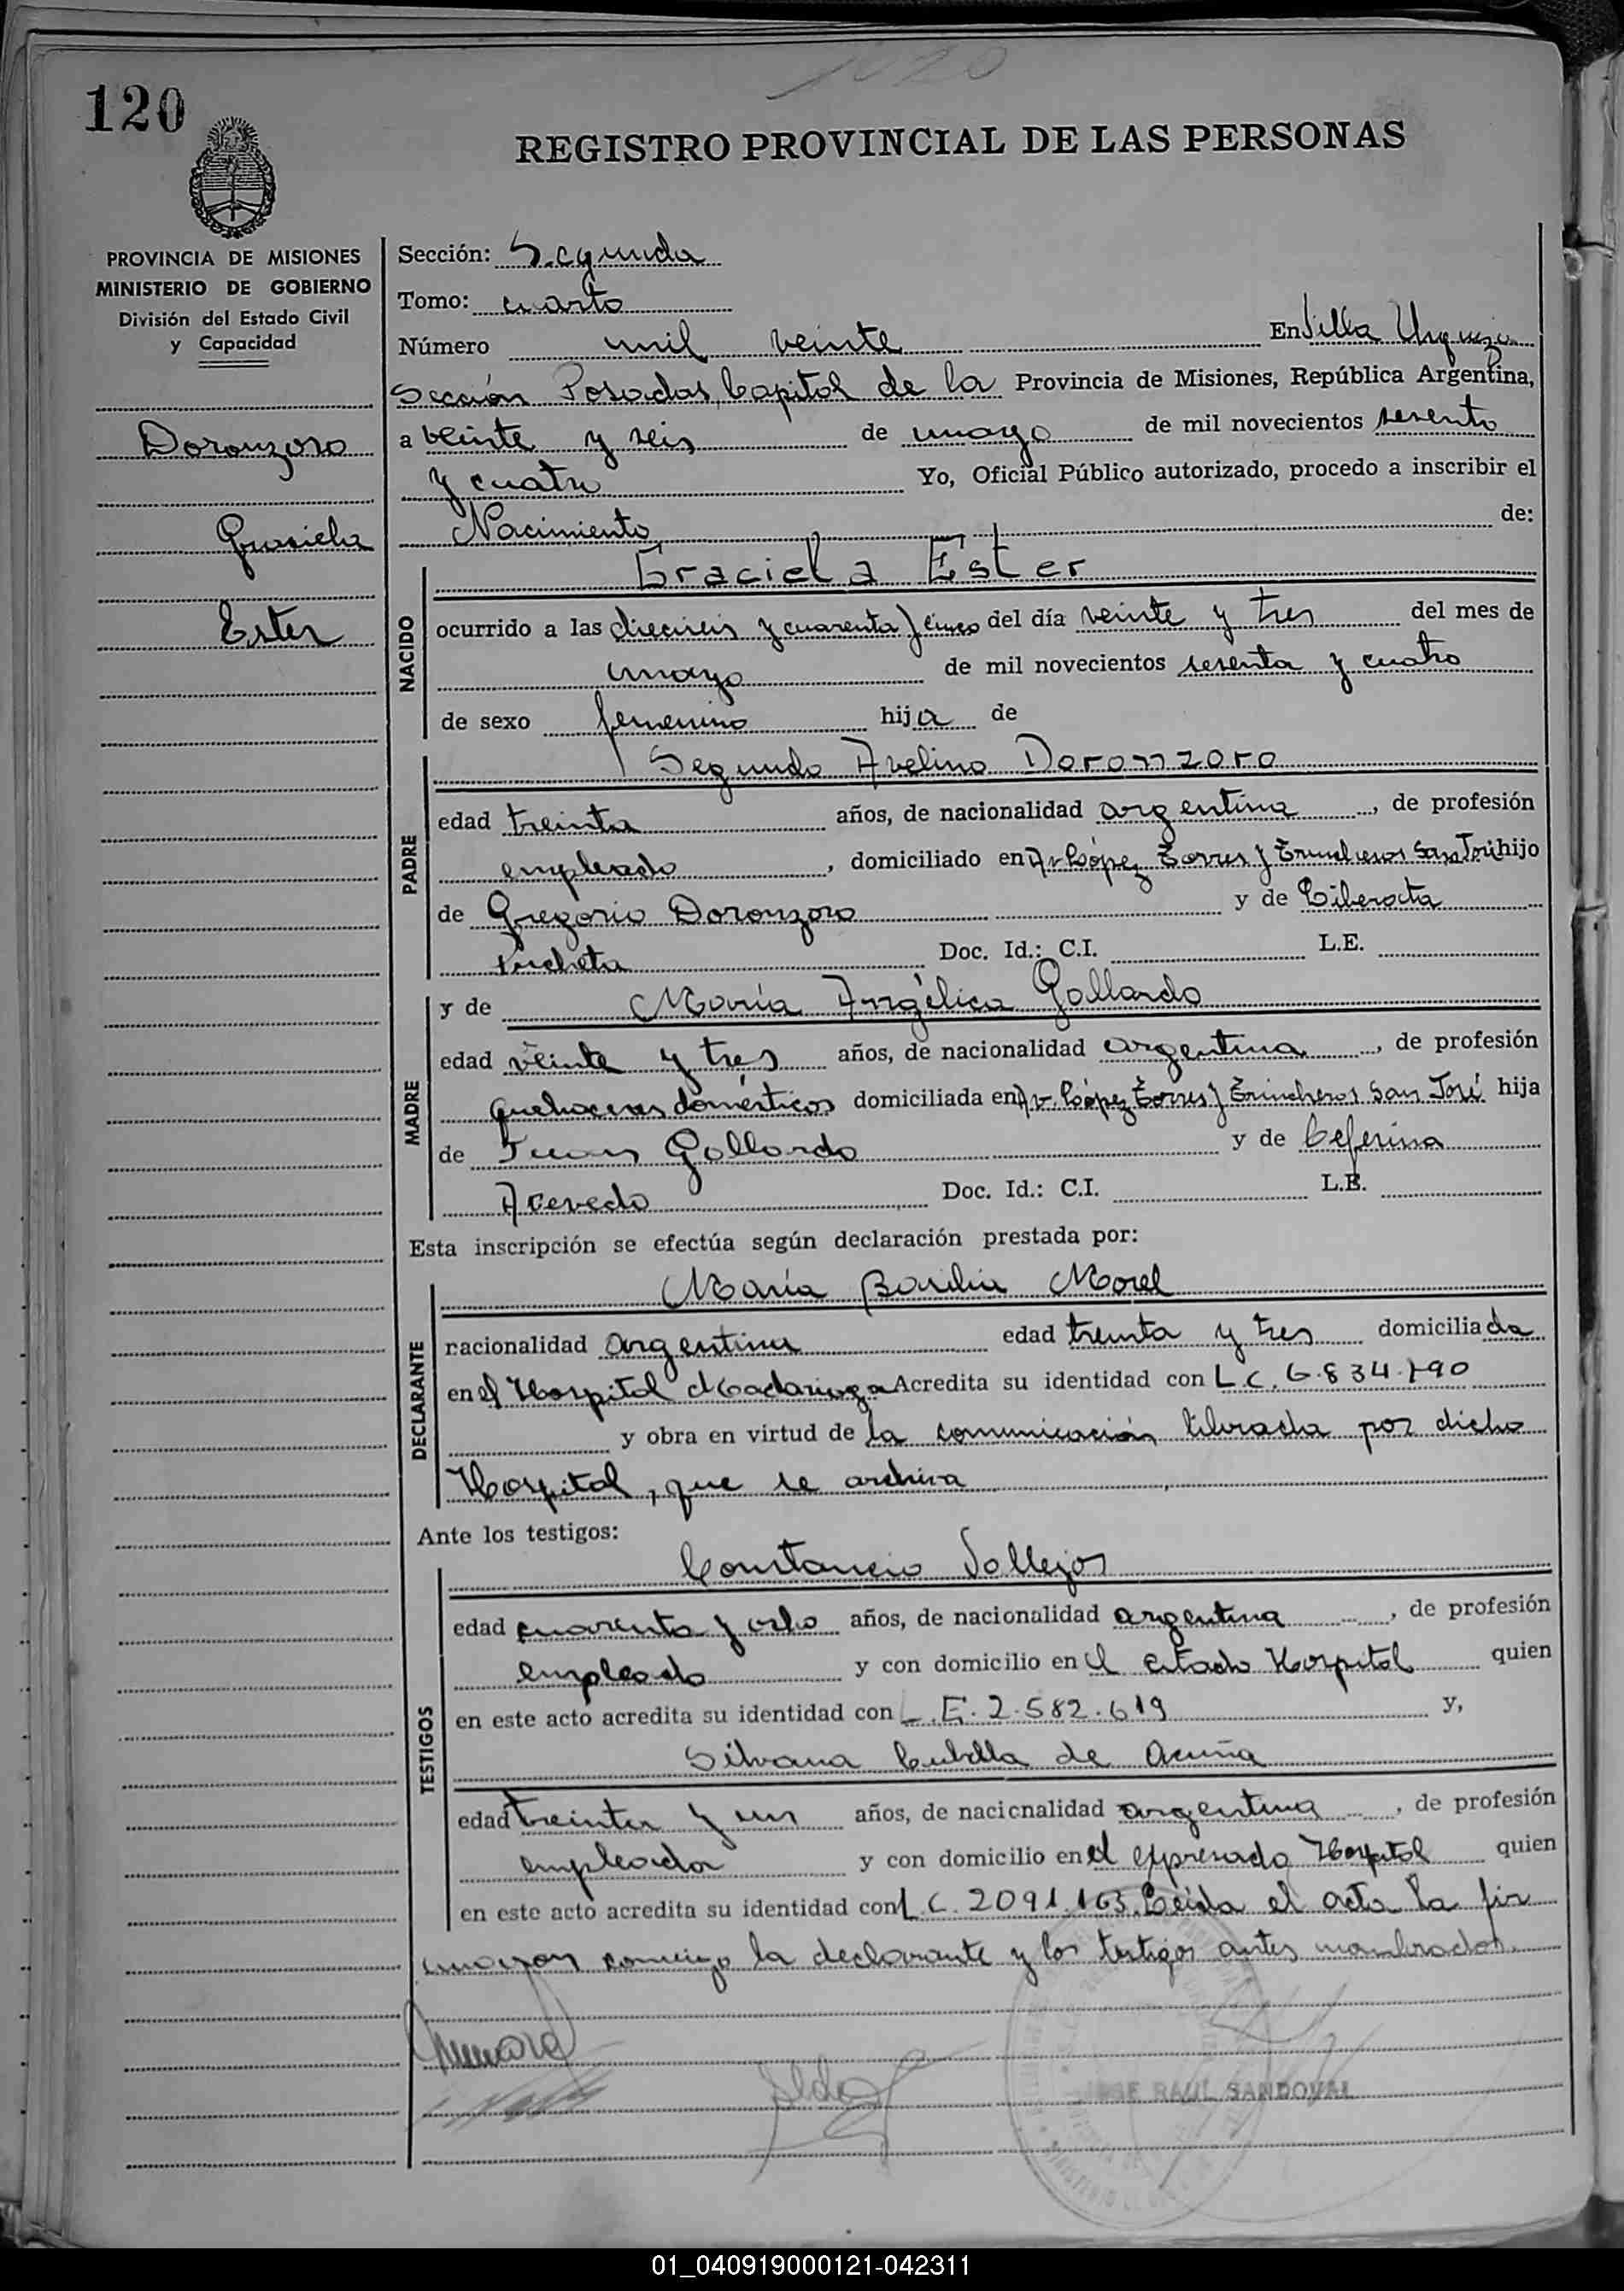 1020
120
REGISTRO PROVINCIAL DE LAS PERSONAS
PROVINCIA DE MISIONES
MINISTERIO DE GOBIERNO
División del Estado Civil
y Capacidad
Doronzoro
Graciela
Ester
Sección: Segunda
Tomo: cuarto
Número mil veinte En Villa Urquiza
Sección Posadas, Capital de la Provincia de Misiones, República Argentina,
a veinte y seis de mayo de mil novecientos sesenta
y cuatro Yo, Oficial Público autorizado, procedo a inscribir el
Nacimiento de:
NACIDO
Graciela Ester
ocurrido a las dieciseis y cuarenta y cinco del día veinte y tres del mes de
mayo de mil novecientos sesenta y cuatro
de sexo femenino hija de
PADRE
Segundo Avelino Doronzoro
edad treinta años, de nacionalidad argentina, de profesión
empleado, domiciliado en Av López Torres y Trincheras San José hijo
de Gregorio Doronzoro y de Liberata
Pucheta Doc. Id.: C.I. L.E.
MADRE
y de María Angélica Gallardo
edad veinte y tres años, de nacionalidad argentina, de profesión
quehaceres domésticos domiciliada en Av. López Torres y Trincheras San José hija
de Juan Gallardo y de Ceferina
Acevedo Doc. Id.: C.I. L.E.
Esta inscripción se efectúa según declaración prestada por:
DECLARANTE
María Basilia Morel
nacionalidad argentina edad treinta y tres domiciliada
en el Hospital Madariaga Acredita su identidad con L.C. 6.834.790
y obra en virtud de la comunicación librada por dicho
Hospital, que se archiva
Ante los testigos:
TESTIGOS
Constancio Vallejos
edad cuarenta y ocho años, de nacionalidad argentina, de profesión
empleado y con domicilio en el citado Hospital quien
en este acto acredita su identidad con L.E. 2.582.619 y,
Silvana Cubilla de Acuña
edad treinta y un años, de nacionalidad argentina, de profesión
empleada y con domicilio en el expresado Hospital quien
en este acto acredita su identidad con L.C. 2091.163. Leída el acta la fir
maron conmigo la declarante y los testigos antes nombrados.
JOSE RAUL SANDOVAL
01_040919000121-042311